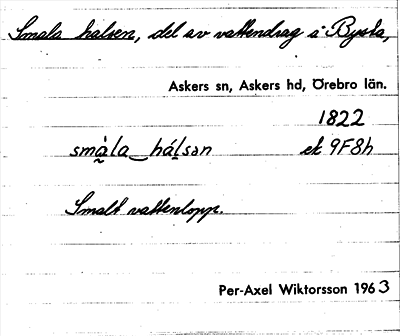 Smala halsen, del av vattendrag i Bysta,
Askers sn, Askers hd, Örebro län.
1822
smà̰la‿hál̠sən ek 9F8h
Smalt vattenlopp.
Per-Axel Wiktorsson 1963